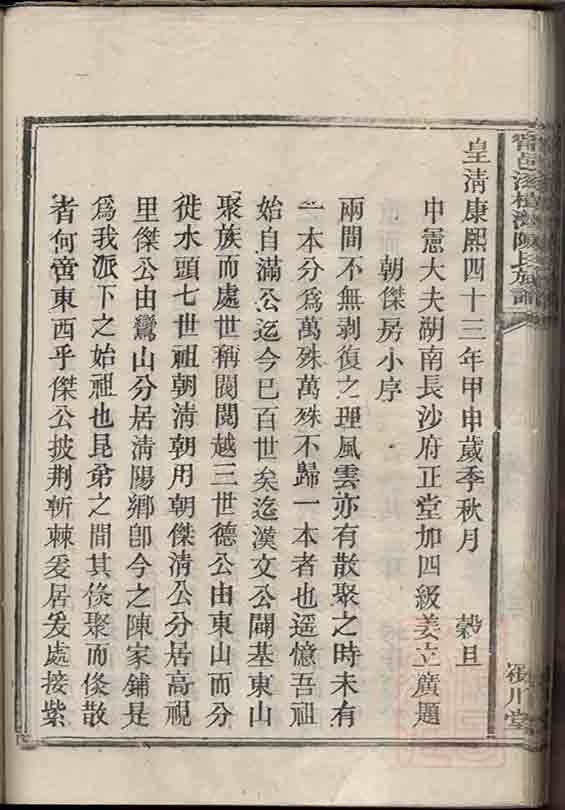 皇清康熙四十三年甲申歲季秋月　　穀旦
中憲大夫湖南長沙府正堂加四級姜立廣題
朝傑房小序
兩間不無剥復之理風雲亦有散聚之時未有
一本分爲萬殊萬殊不歸一本者也遥憶吾祖
始自滿公迄今巳百世矣迄漢文公闢基東山
聚族而處世稱閥閱越三世德公由東山而分
徙水頭七世祖朝清朝用朝傑清公分居高視
里傑公由鸞山分居清陽鄉卽今之陳家鋪是
爲我派下之始祖也昆弟之間其倐聚而倐散
者何啻東西乎傑公披荆斬棘爰居爰處接紫
陳氏族譜
川堂